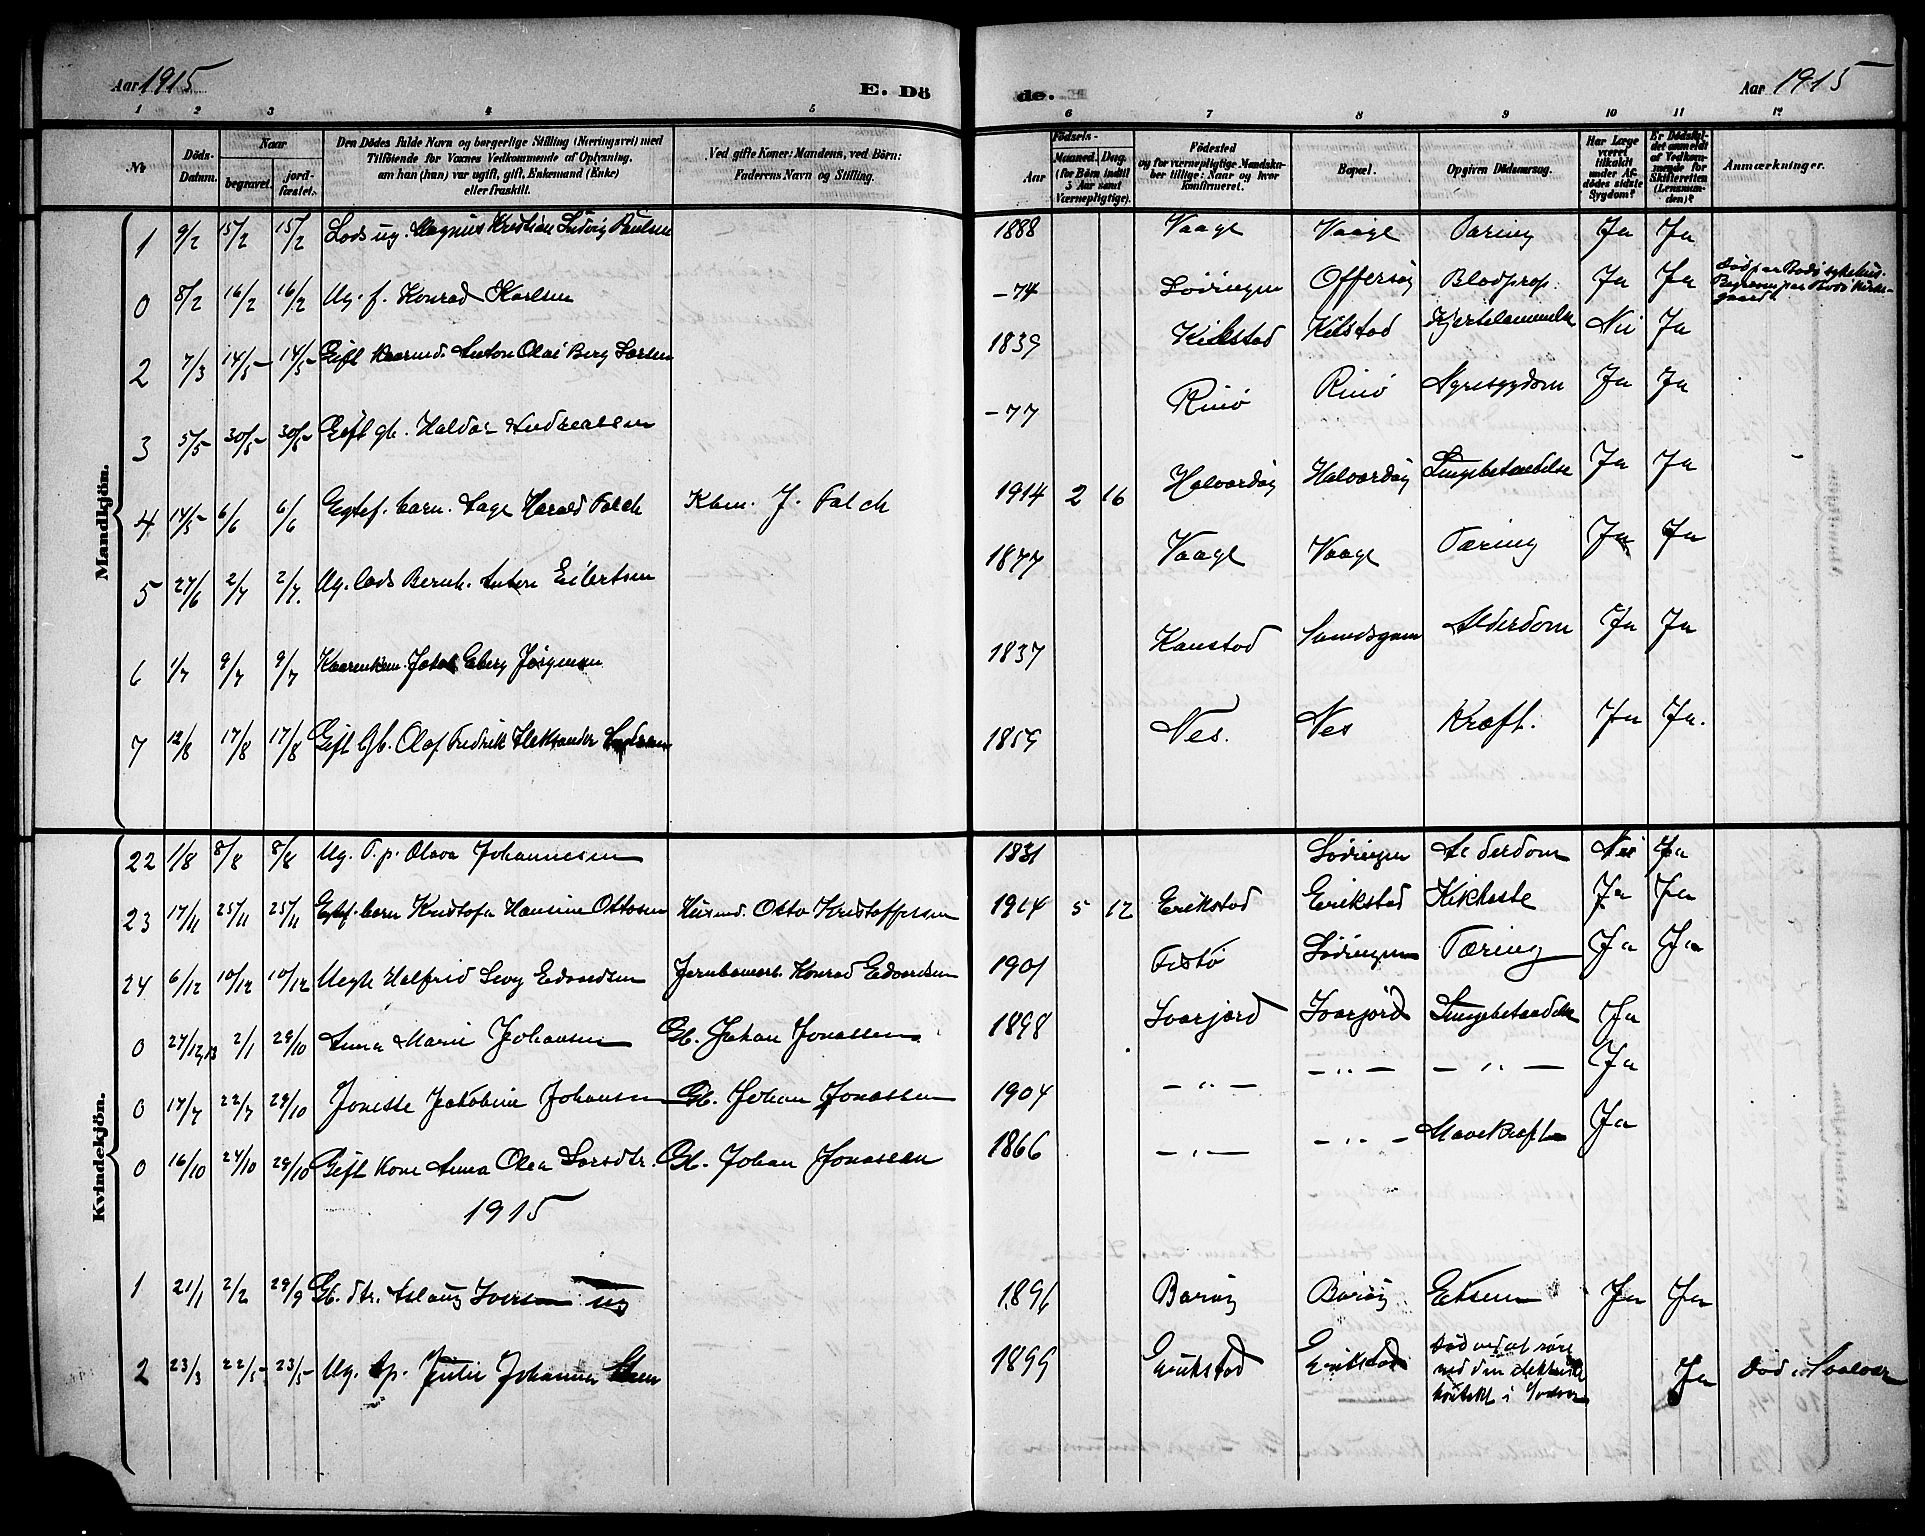 Aar 1915
E. Dö
de.
Aar 1915
1 2 3 4 5 6 7 8 9 10 11 12
№
Döds-Datum.
Naar
begravet.
jord-fæstet.
Den Dödes fulde Navn og borgerlige Stilling (Næringsvei) med
Tilföiende for Voxnes Vedkommende af Oplysning,
om han (hun) var ugift, gift, Enkemand (Enke)
eller fraskilt.
Ved gifte Koner: Mandens, ved Börn:
Faderens Navn og Stilling.
Födsels-
Aar
Maaned. Dag.
(for Börn indtil
3 Aar samt
Værnepligtige).
Födested
og for værnepligtige Mandska-
ber tillige: Naar og hvor
konfirmeret.
Bopæl.
Opgiven Dödsaarsag.
Har Læge
været
tilkaldt
under Af-
dödes sidste
Sygdom?
Er Dödsfal-
det anmeldt
af Vedkom-
mende for
Skifteretten
(Lensman-
den)?
Anmærkninger.
Mandkjön.
1 9/2 15/2 15/2 Lods ug. Magnus Kristian Ludvig Paulsen 1888 Vaage Vaage Tæring Ja Ja
0 8/2 16/2 16/2 Ug. f. Konrad Karlsen -74 Lödingen Offersøy Blodprop. Ja Ja Död paa Bodö sykehus. Begravn. paa Bodö kirkegaard.
2 7/3 14/5 14/5 Gift Kaarmd. Anton Olai Berg Larsen 1839 Kilstad Kilstad Hjertelammelse Nei Ja
3 5/5 30/5 30/5 Gift gb. Haldor Andreassen -77 Rinø Rinø Nyresygdom Ja Ja
4 14/5 6/6 6/6 Egtef. barn. Aage Harald Falch Kbm. J. Falch 1914 2 16 Halvardøy Halvardøy Lungebetændelse Ja Ja
5 27/6 2/7 2/7. Ug. lods Bernh. Anton Eilertsen 1877 Vaage Vaage Tæring Ja Ja
6 1/7 9/7 9/7 Kaarenkem. Jakob Eberg Jörgensen 1837 Kanstad Alderdom Ja Ja
7 12/8 17/8 17/8 Gift Gb. Olaf Fredrik Aleksander 1859 Nes. Nes Kræft. Ja Ja.
Kvindekjön.
22 1/8 8/8 8/8 Ug. F.p. Olava Johannesen 1831 Lödingen Alderdom Nei Ja
23 17/11 25/11 25/11 Egtef. barn Kristofa Hansine Ottosen Husmd. Otto Kristoffersen 1914 5 12 Erikstad Erikstad Kikhoste Ja Ja
24 6/12 10/12 10/12 Ugift Halfrid Levy Edvardsen Jernbanearb. Konrad Edvardsen 1901 Lödingen Tæring Ja Ja
0 27/12,13 2/1 29/10 Anna Marie Johansen Gb. Johan Jonassen 1898 Svarjord Svarjord Lungebetændelse Ja
0 17/7 22/7 29/10 Jonette Jakobine Johansen Gb. Johan Jonassen 1904 — „ — — „ — — „ — Ja
0 16/10 24/10 29/10 Gift Kone Anna Olea Larsdtr. Gb. Johan Jonassen 1866 — „ — — „ — Mavekræft Ja
1915
1 21/1 2/2 29/9 Gb. dtr. Aslaug Iversen ug 1896 Barøy Barøy Ja Ja
2 23/3 22/5 23/5 Ug. Julie Johanne 1899 Erikstad Erikstad Död ved at röre ved den elektriske i Ja Död i Svolvær